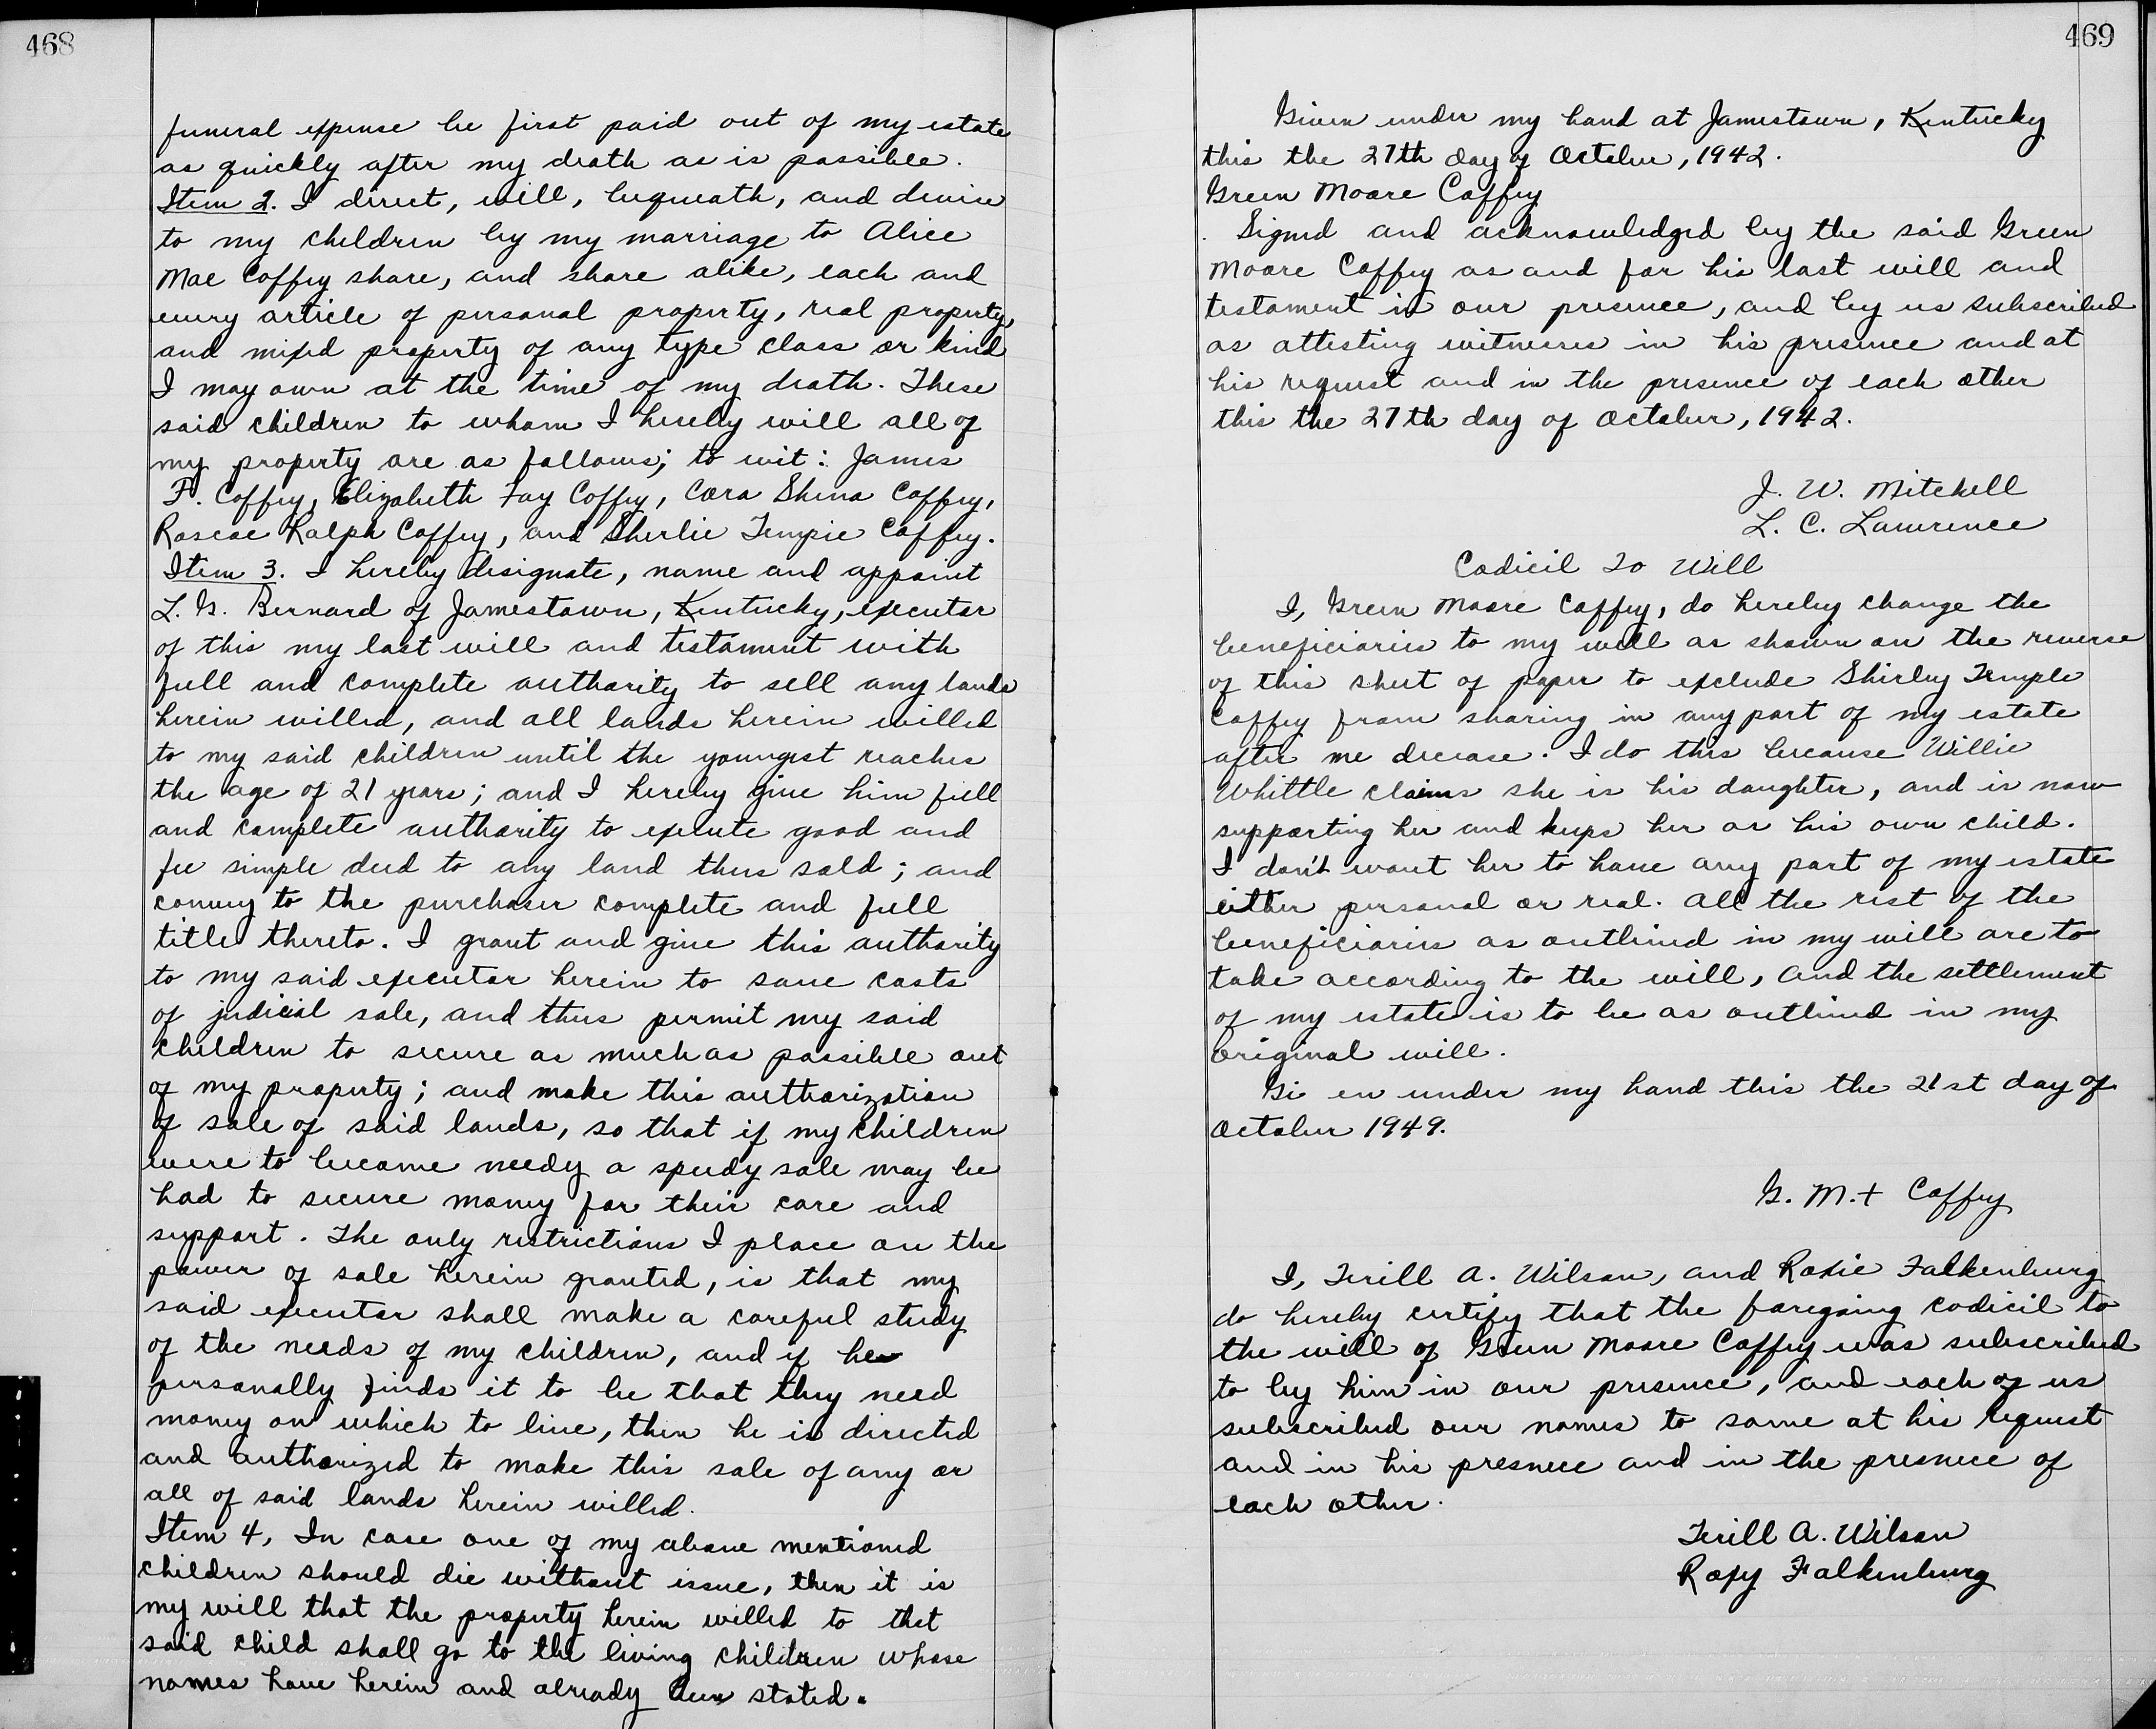 468
funeral expense be first paid out of my estate
as quickly after my death as is possible.
Item 2. I direct, will, bequeath, and devise
to my children by my marriage to Alice
Mae Coffey share, and share alike, each and
every article of personal property, real property,
and mixed property of any type class or kind
I may own at the time of my death. These
said children to whom I hereby will all of
my property are as follows; to wit: James
F. Coffey, Elizabeth Fay Coffey, Cora Shena Coffey,
Roscoe Ralph Coffey, and Sherlie Tempie Coffey.
Item 3. I hereby designate, name and appoint
L. G. Bernard of Jamestown, Kentucky, executor
of this my last will and testament with
full and complete authority to sell any lands
herein willed, and all lands herein willed
to my said children until the youngest reaches
the age of 21 years; and I hereby give him full
and complete authority to exeute good and
fee simple deed to any land thus sold; and
convey to the purchaser complete and full
title thereto. I grant and give this authority
to my said executor herein to save costs
of judicial sale, and thus permit my said
children to secure as much as possible out
of my property; and make this authorization
of sale of said lands, so that if my children
were to become needy a speedy sale may be
had to secure money for their care and
support. The only restrictions I place on the
power of sale herein granted, is that my
said executor shall make a careful study
of the needs of my children, and if he
personally finds it to be that they need
money on which to live, then he is directed
and authorized to make this sale of any or
all of said lands herein willed.
Item 4, In case one of my above mentioned
children should die without issue, then it is
my will that the property herein willed to that
said child shall go to the living children whose
names have herein and already been stated.
469
Given under my hand at Jamestown, Kentucky
this the 27th day of October, 1942.
Green Moore Coffey
Signed and acknowledged by the said Green
Moore Coffey as and for his last will and
testament in our presence, and by us subscribed
as attesting witnesses in his presence and at
his request and in the presence of each other
this the 27th day of October, 1942.
J. W. Mitchell
L. C. Lawrence
Codicil To Will
I, Green Moore Coffey, do hereby change the
beneficiaries to my will as shown on the reverse
of this sheet of paper to exclude Shirley Temple
Coffey from sharing in any part of my estate
after me decease. I do this because Willie
Whittle claims she is his daughter, and is now
supporting her and keeps her as his own child.
I don't want her to have any part of my estate
either personal or real. All the rest of the
beneficiaries as outlined in my will are to
take according to the will, and the settlement
of my estate is to be as outlined in my
original will.
Gi en under my hand this the 21st day of
October 1949.
G. M. + Coffey
I, Terill A. Wilson, and Roxie Falkenburg
do hereby certify that the foregoing codicil to
the will of Green Moore Coffey was subscribed
to by him in our presence, and each of us
subscribed our names to same at his request
and in his presnece and in the presnece of
each other.
Terill A. Wilson
Roxy Falkenburg